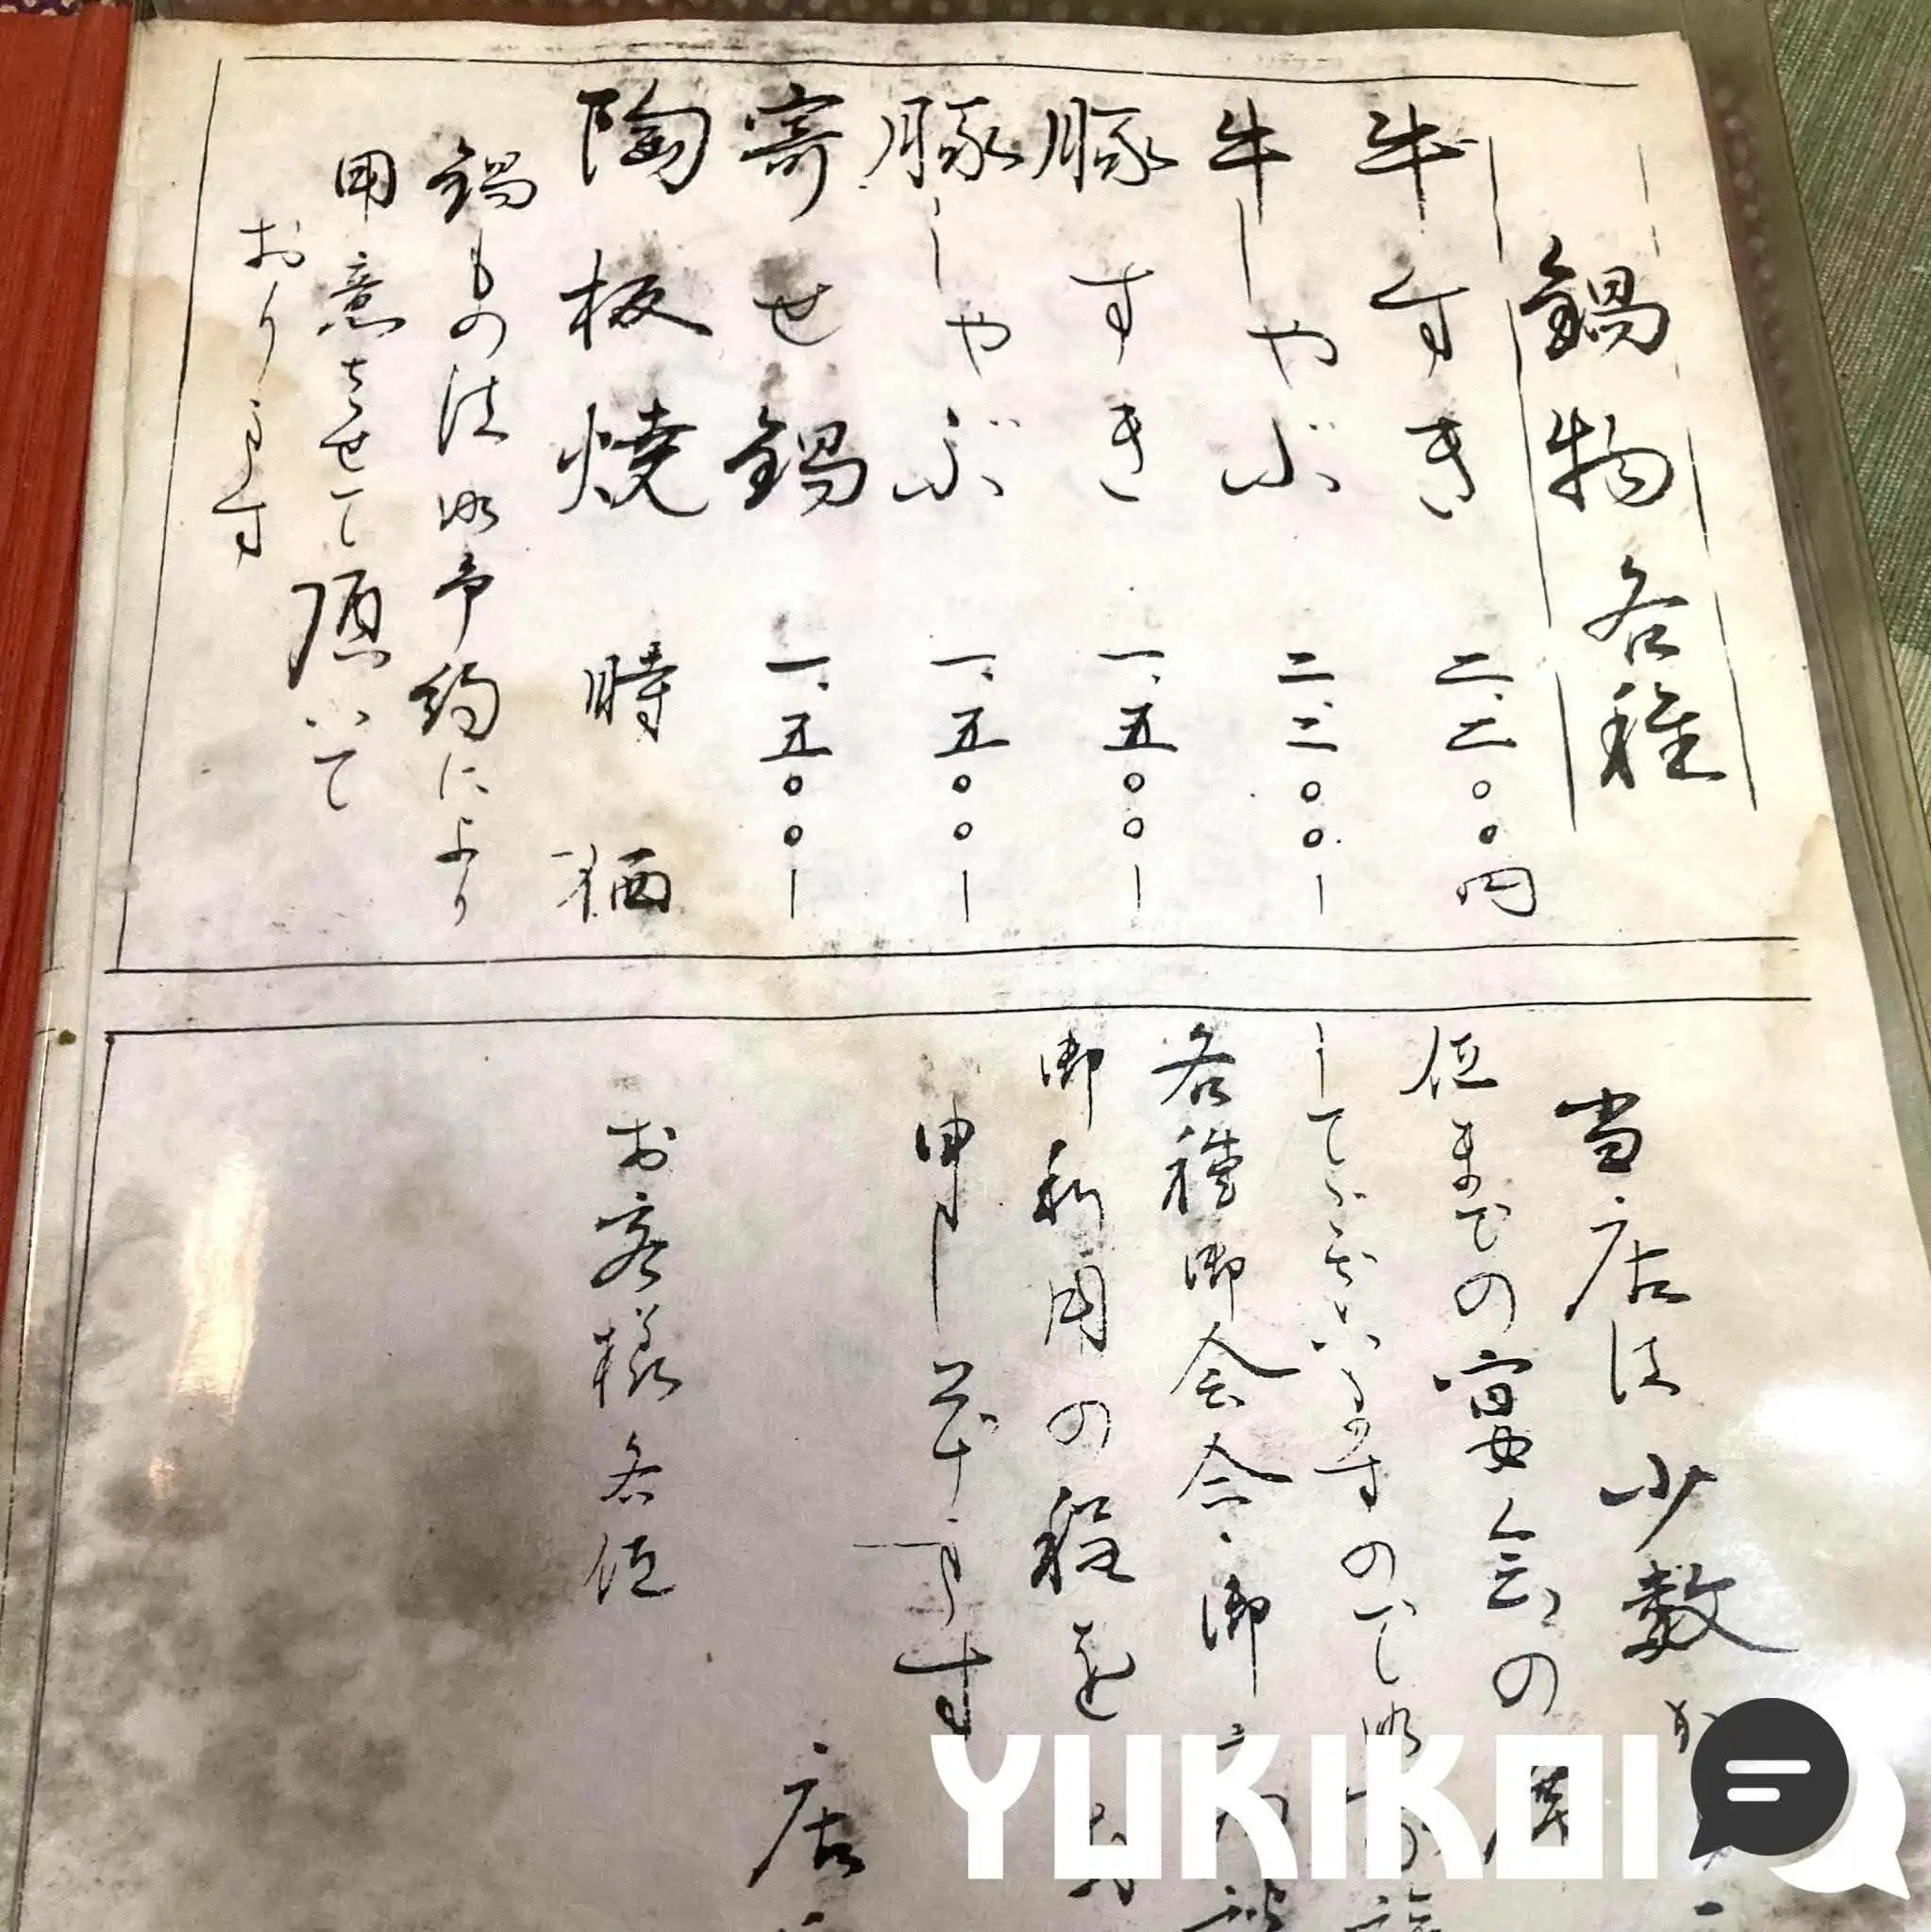 鍋物各種
牛すき 二、二〇〇円
牛しゃぶ 二、二〇〇ー
豚すき 一、五〇〇ー
豚しゃぶ 一、五〇〇ー
寄せ鍋 一、五〇〇ー
陶板焼 時価
鍋もの は御予約により
用意させて頂いて
おります
当店は少数か
位までの宴会の
してございますので御
各種御会合、御
御利用の程を
申し上げます
お客様各位
店
YUKIKOI